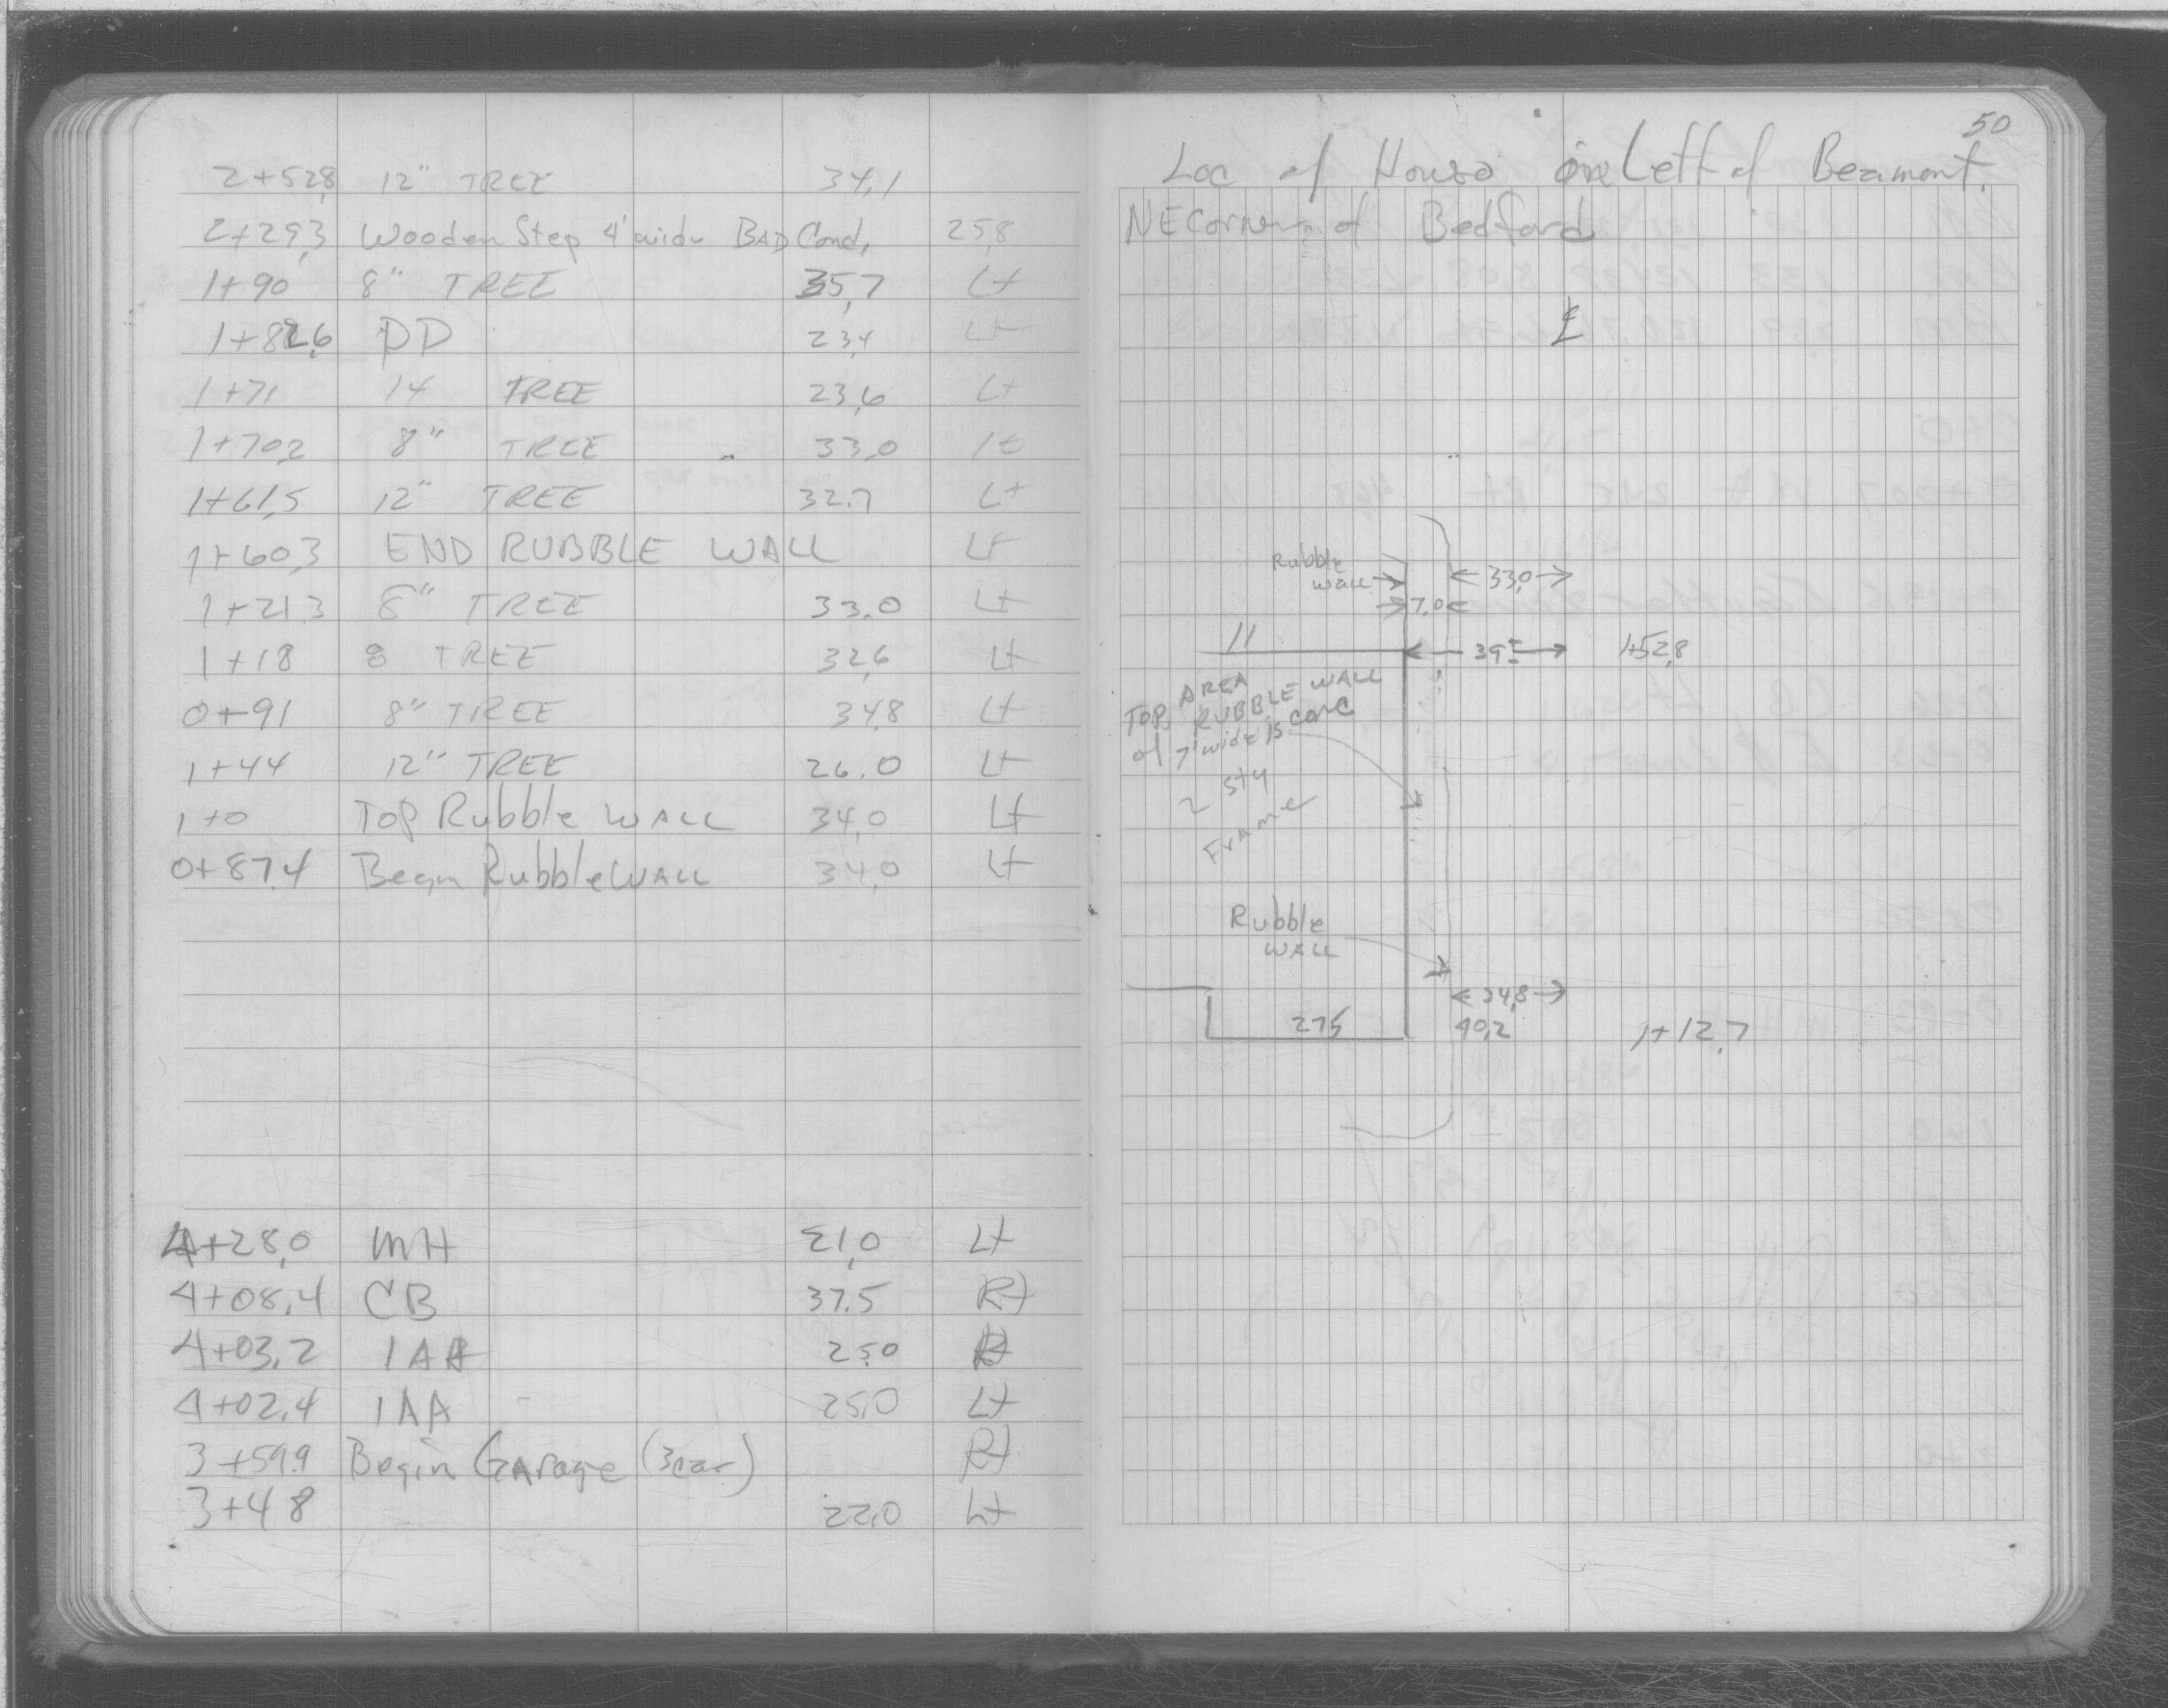 2+52,8 12" TREE 34,1
2+29,3 Wooden Step 4' wide BAD Cond, 25,8
1+90 8" TREE 35,7 Lt
1+82,6 DD 23,4 Lt
1+71 14 TREE 23,6 Lt
1+70,2 8" TREE 33,0 Lt
1+61,5 12" TREE 32.7 Lt
1+60,3 END RUBBLE WALL Lt
1+21,3 8" TREE 33.0 Lt
1+18 8 TREE 32,6 Lt
0+91 8" TREE 34,8 Lt
1+44 12" TREE 26.0 Lt
1+0 Top Rubble WALL 34,0 Lt
0+87.4 Begin Rubble WALL 34,0 Lt
4+28,0 MH 21,0 Lt
4+08,4 CB 37.5 Rt
4+03,2 1AA 25.0 Rt
4+02.4 1AA 25,0 Lt
3+59.9 Begin GArage (3car) Rt
3+48 22,0 Lt
50
Loc of House on Left of Beaumont.
NE Corner of Bedford
℄
Rubble
wall
33,0
7.0
11
39.5
1+52,8
AREA
TOP, RUBBLE WALL
of 7' wide is conc
2 Sty
Frame
Rubble
WALL
34,8
27,5
40,2
1+12,7